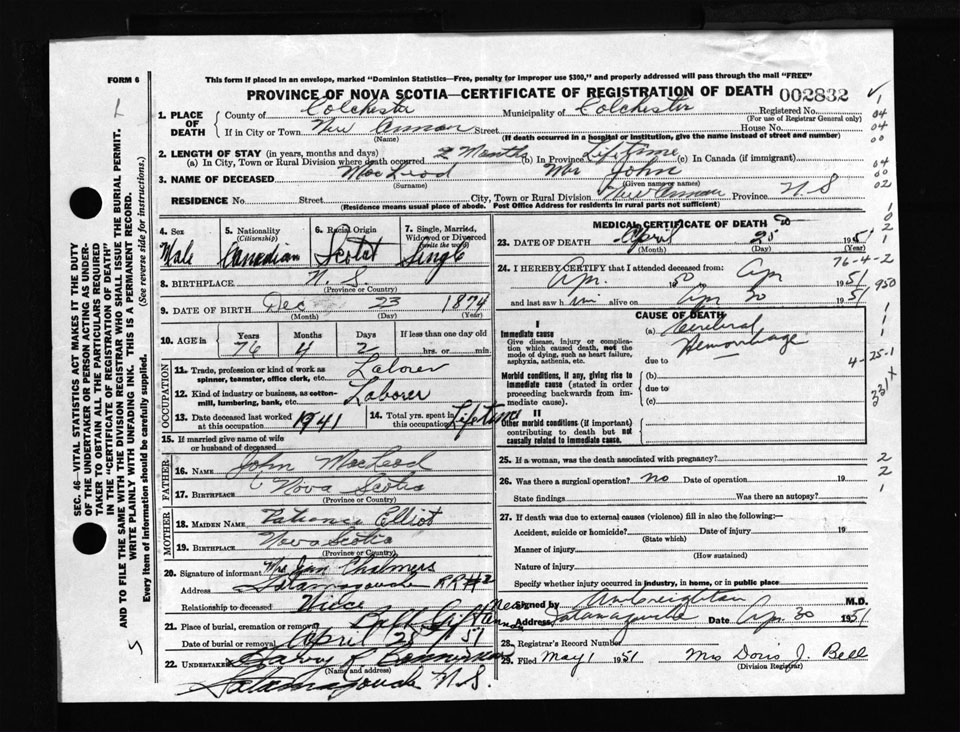 FORM 6
This form if placed in an envelope, marked "Dominion Statistics—Free, penalty for improper use $300," and properly addressed will pass through the mail "FREE"
PROVINCE OF NOVA SCOTIA—CERTIFICATE OF REGISTRATION OF DEATH 002832
1. PLACE OF DEATH
County of Colchester Municipality of Colchester Registered No.
(For use of Registrar General only)
If in City or Town New Annan Street House No.
(Name) (If death occurred in a hospital or institution, give the name instead of street and number)
2. LENGTH OF STAY (in years, months and days)
(a) In City, Town or Rural Division where death occurred 2 Months (b) In Province Lifetime (c) In Canada (if immigrant)
3. NAME OF DECEASED MacLeod Mr John
(Surname) (Given name or names)
RESIDENCE No. Street City, Town or Rural Division New Annan Province N.S
(Residence means usual place of abode. Post Office Address for residents in rural parts not sufficient)
4. Sex Male
5. Nationality (Citizenship) Canadian
6. Racial Origin Scotch
7. Single, Married, Widowed or Divorced (write the word) Single
8. BIRTHPLACE N. S.
(Province or Country)
9. DATE OF BIRTH Dec 23 1874
(Month) (Day) (Year)
10. AGE in Years Months Days If less than one day old
76 4 2 hrs. or min.
OCCUPATION
11. Trade, profession or kind of work as spinner, teamster, office clerk, etc. Laborer
12. Kind of industry or business, as cotton-mill, lumbering, bank, etc. Laborer
13. Date deceased last worked at this occupation 1941
14. Total yrs. spent in this occupation Lifetime
15. If married give name of wife or husband of deceased
FATHER
16. NAME John MacLeod
17. BIRTHPLACE Nova Scotia
(Province or Country)
MOTHER
18. MAIDEN NAME Patience Elliot
19. BIRTHPLACE Nova Scotia
(Province or Country)
20. Signature of informant Mrs Jean Chalmers
Address Tatamagouche RR#2
Relationship to deceased Niece
21. Place of burial, cremation or removal
Date of burial or removal April 25 /51
22. Undertaker
(Name and address)
Tatamagouche N.S.
MEDICAL CERTIFICATE OF DEATH
23. DATE OF DEATH April 25 1951
(Month) (Day) (Year)
24. I HEREBY CERTIFY that I attended deceased from:
Apr. to Ap 1951
and last saw him alive on Ap 20 1951
CAUSE OF DEATH
I
Immediate cause
Give disease, injury or complication which caused death, not the mode of dying, such as heart failure, asphyxia, asthenia, etc.
(a) Cerebral Hemorrhage
due to
Morbid conditions, if any, giving rise to immediate cause (stated in order proceeding backwards from immediate cause).
(b)
due to
(c)
II
Other morbid conditions (if important) contributing to death but not causally related to immediate cause.
25. If a woman, was the death associated with pregnancy?
26. Was there a surgical operation? No Date of operation 19
State findings Was there an autopsy?
27. If death was due to external causes (violence) fill in also the following:—
Accident, suicide or homicide? Date of injury 19
(State which)
Manner of injury
(How sustained)
Nature of injury
Specify whether injury occurred in industry, in home, or in public place
Signed by Creighton M.D.
Address Tatamagouche Date Ap. 30 1951
28. Registrar's Record Number
29. Filed May 1 1951 Mrs Doris J. Bell
(Division Registrar)
SEC. 46—VITAL STATISTICS ACT MAKES IT THE DUTY OF THE UNDERTAKER OR PERSON ACTING AS UNDERTAKER TO OBTAIN ALL THE PARTICULARS REQUIRED IN THE "CERTIFICATE OF REGISTRATION OF DEATH" AND TO FILE THE SAME WITH THE DIVISION REGISTRAR WHO SHALL ISSUE THE BURIAL PERMIT.
WRITE PLAINLY WITH UNFADING INK. THIS IS A PERMANENT RECORD.
Every item of information should be carefully supplied. (See reverse side for instructions.)
1
04
04
00
04
00
02
1
0
2
1
76-4-2
950
1
1
1
4-25-1
331x
2
2
1